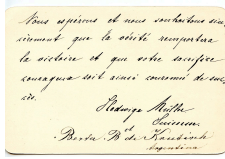 Nous espérons et nous souhaitons sin-
cèrement que la vérité remportera
la victoire et que votre sacrifice
courageux soit ainsi couronné de suc-
cès.
Hedwige Müller
Suissesse
Argentina